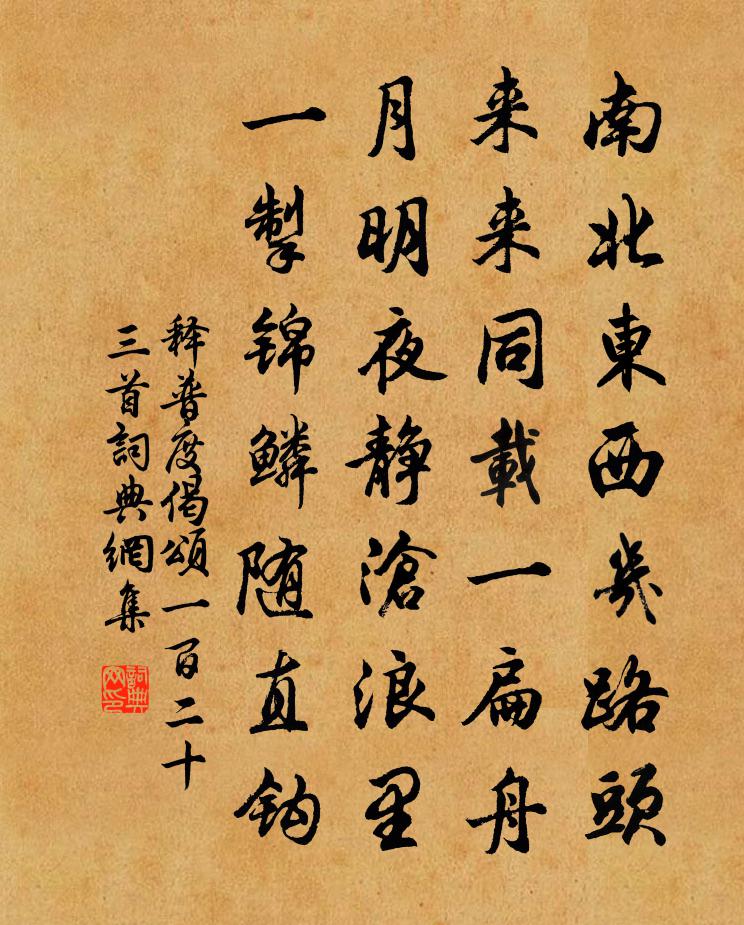 南北東西幾路頭
来来同載一扁舟
月明夜静滄浪里
一掣锦鳞随直钩
释普度偈頌一百二十
三首詞典網集
詞典网印